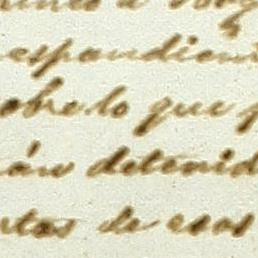 espondien
obre lo que
án detenid
tas de esos